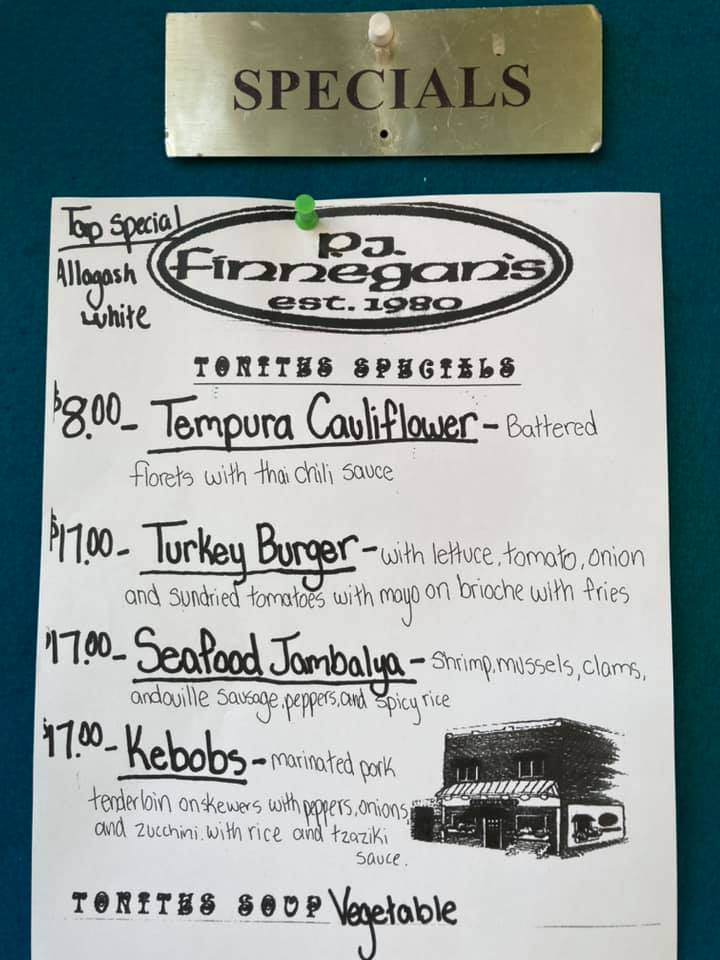 SPECIALS
Tap Special
Allagash
white
P.J.
Finnegan's
est. 1980
TONITES SPECIALS
$8.00- Tempura Cauliflower - Battered
florets with thai chili sauce
$17.00- Turkey Burger - with lettuce, tomato, onion
and sundried tomatoes with mayo on brioche with fries
$17.00- Seafood Jambalya - Shrimp, mussels, clams,
andouille sausage, peppers, and spicy rice
$17.00- Kebobs - marinated pork
tenderloin on skewers with peppers, onions
and zucchini. with rice and tzaziki
sauce.
TONITES SOUP Vegetable